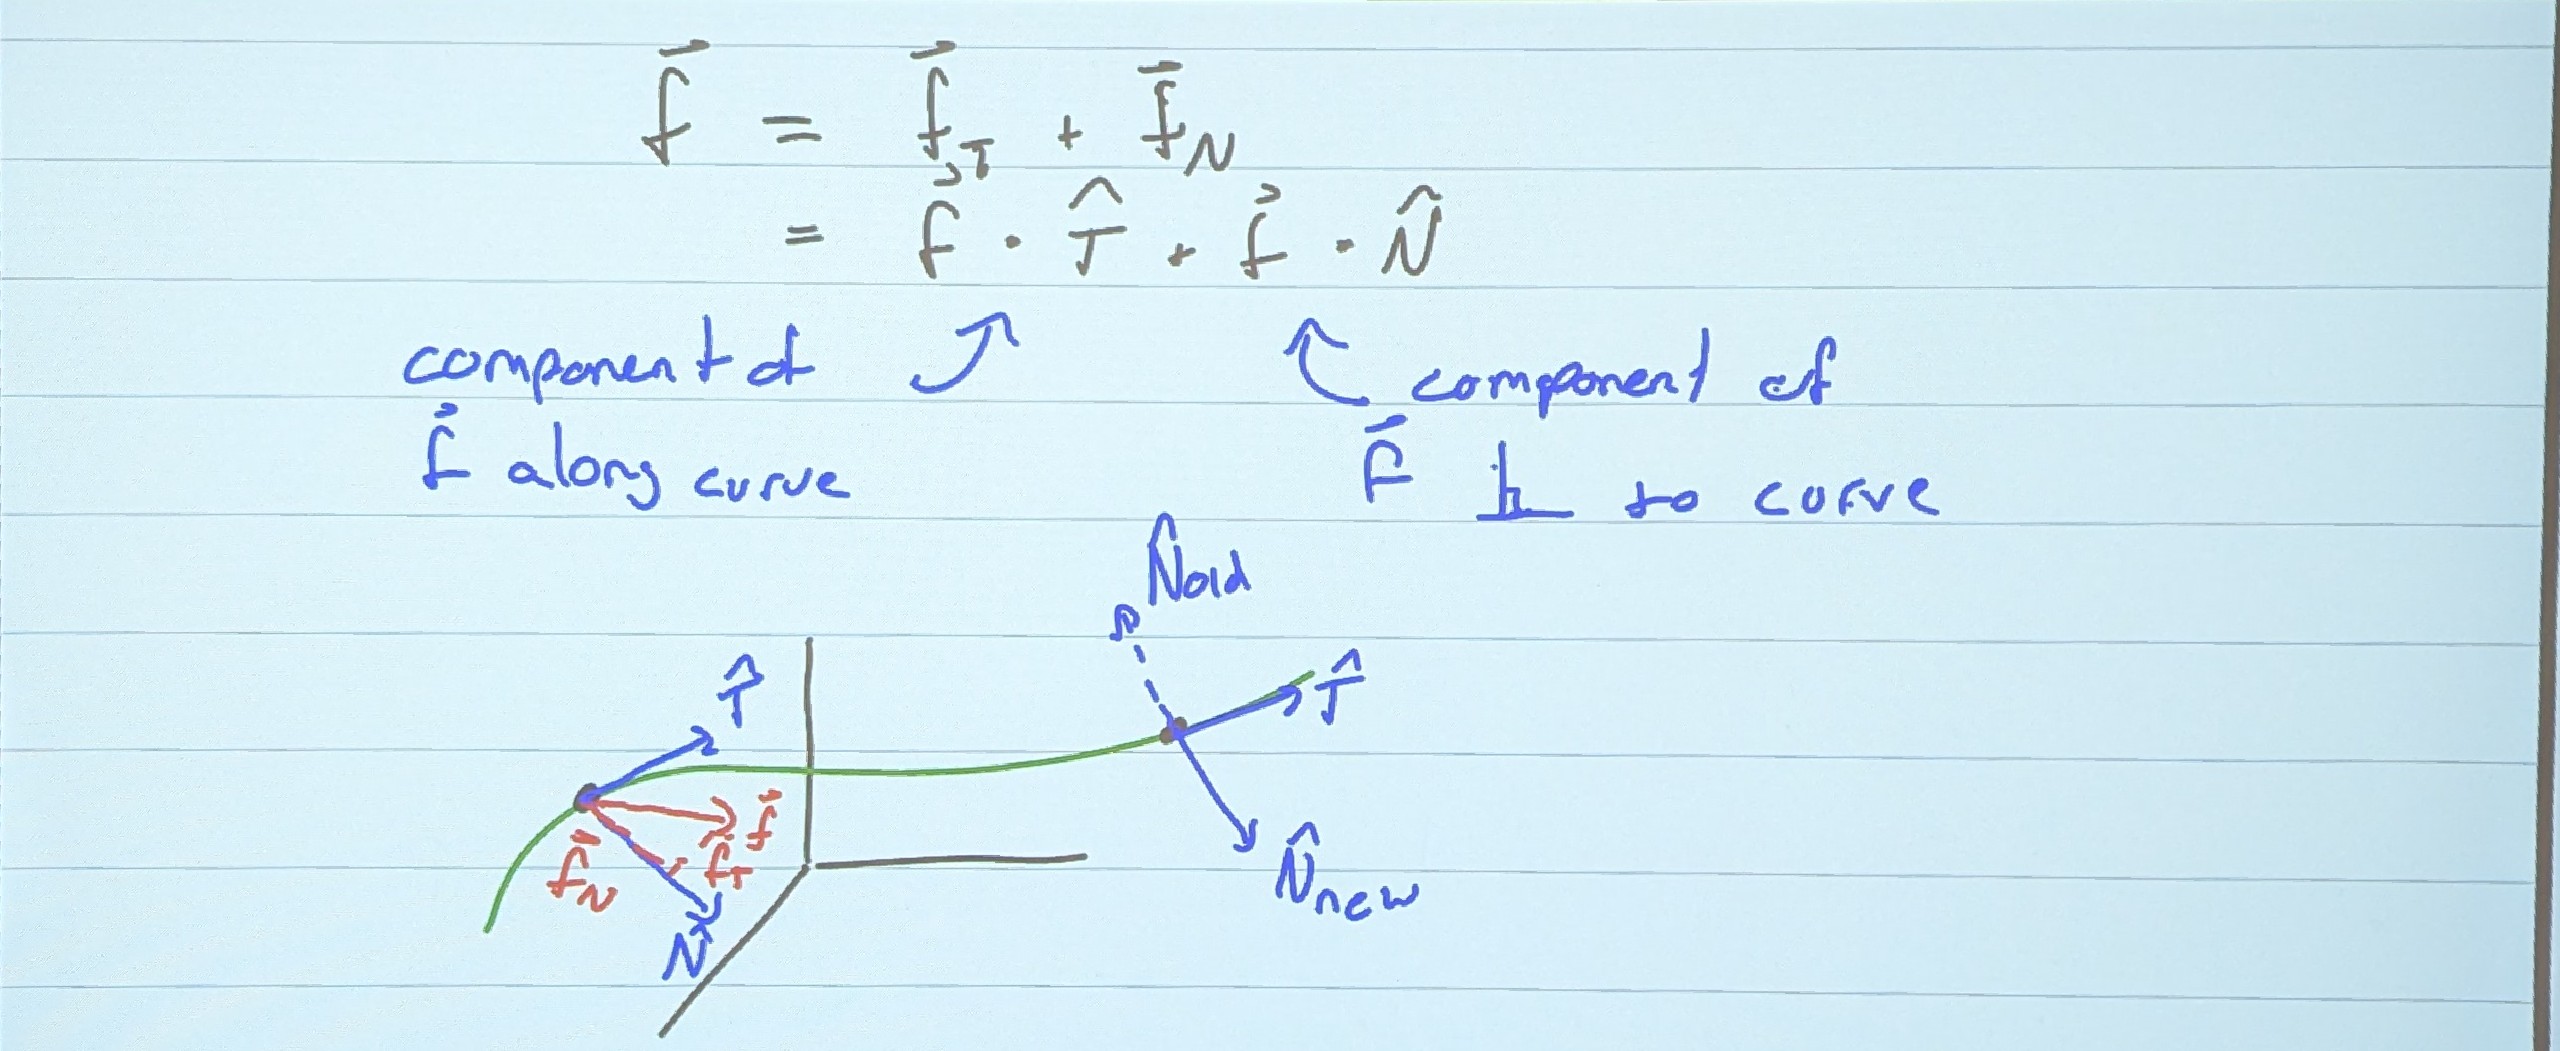 f⃗ = f⃗_T + f⃗_N
= f⃗ · T̂ + f⃗ · N̂
component of
f⃗ along curve
component of
F⃗ ⊥ to curve
N̂old
T̂
T̂
f⃗
f⃗_T
f⃗_N
N̂
N̂new